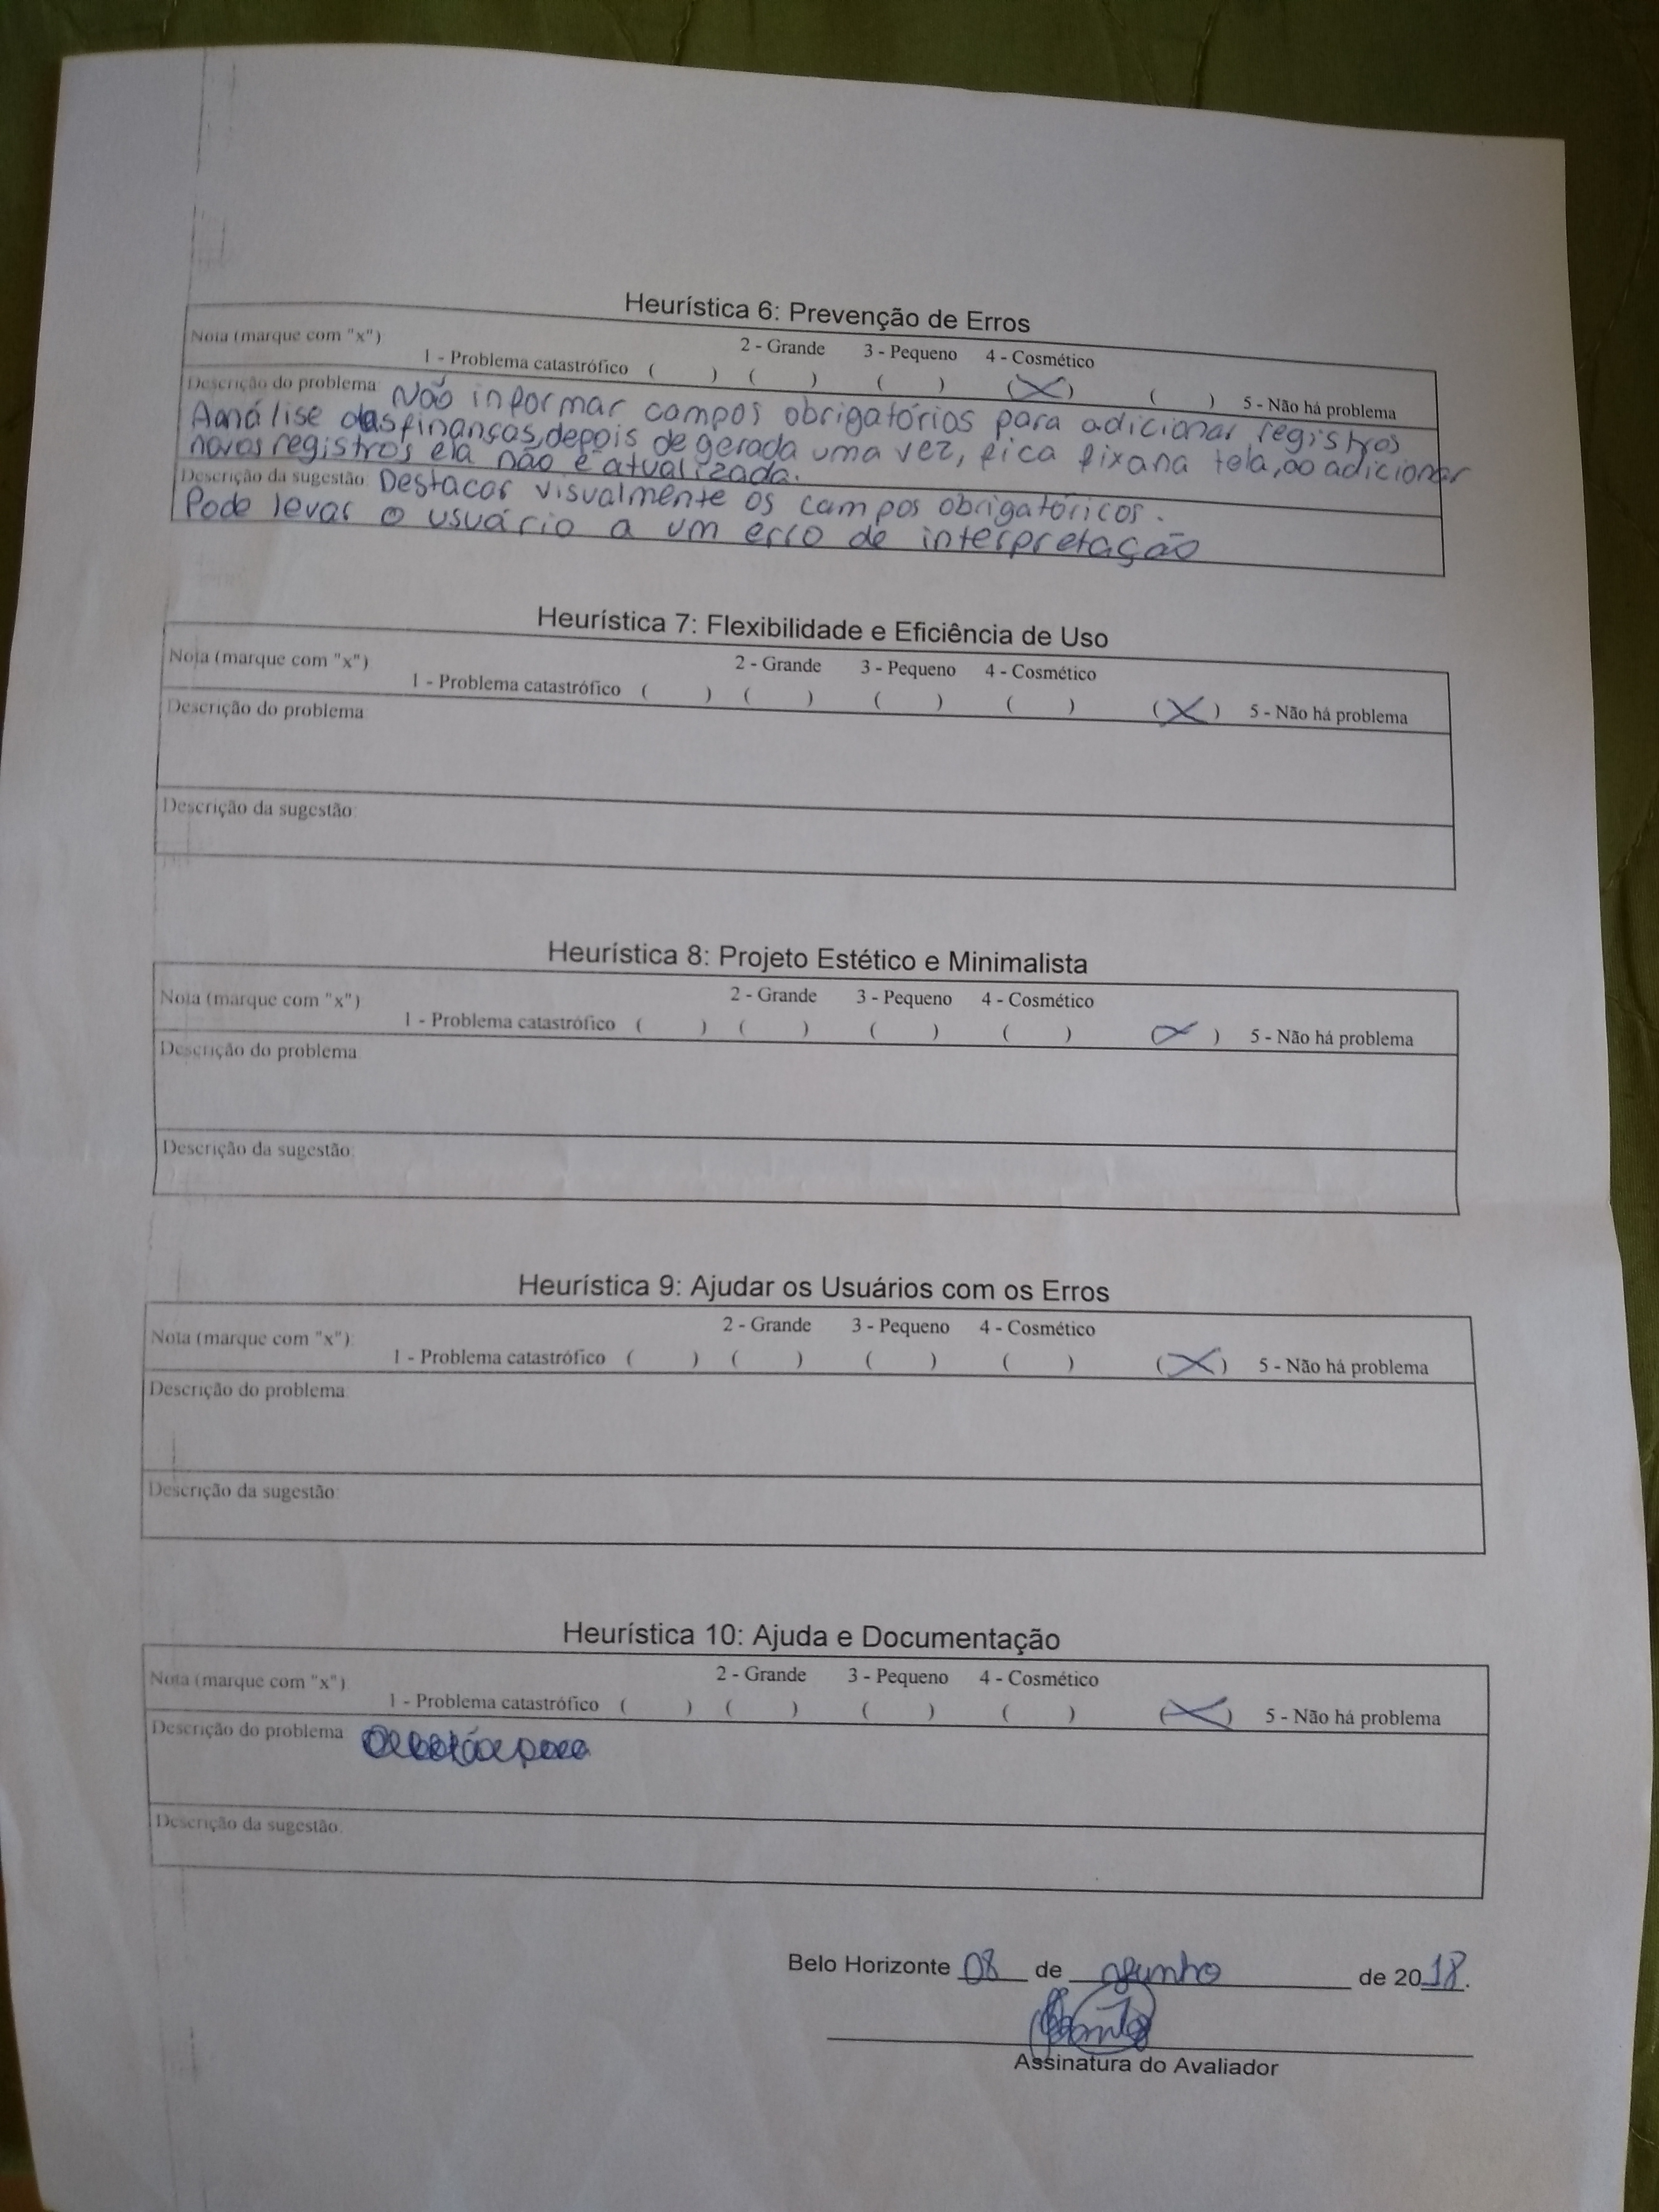 Heurística 6: Prevenção de Erros
Nota (marque com "x")
1 - Problema catastrófico ( ) 2 - Grande ( ) 3 - Pequeno ( ) 4 - Cosmético (X) ( ) 5 - Não há problema
Descrição do problema: Não informar campos obrigatórios para adicionar registros
A análise das finanças, depois de gerada uma vez, fica fixa na tela, ao adicionar
novos registros ela não é atualizada.
Descrição da sugestão: Destacar visualmente os campos obrigatóricos.
Pode levar o usuário a um erro de interpretação
Heurística 7: Flexibilidade e Eficiência de Uso
Nota (marque com "x")
1 - Problema catastrófico ( ) 2 - Grande ( ) 3 - Pequeno ( ) 4 - Cosmético ( ) (X) 5 - Não há problema
Descrição do problema:
Descrição da sugestão:
Heurística 8: Projeto Estético e Minimalista
Nota (marque com "x")
1 - Problema catastrófico ( ) 2 - Grande ( ) 3 - Pequeno ( ) 4 - Cosmético ( ) (X) 5 - Não há problema
Descrição do problema:
Descrição da sugestão:
Heurística 9: Ajudar os Usuários com os Erros
Nota (marque com "x"):
1 - Problema catastrófico ( ) 2 - Grande ( ) 3 - Pequeno ( ) 4 - Cosmético ( ) (X) 5 - Não há problema
Descrição do problema:
Descrição da sugestão:
Heurística 10: Ajuda e Documentação
Nota (marque com "x"):
1 - Problema catastrófico ( ) 2 - Grande ( ) 3 - Pequeno ( ) 4 - Cosmético ( ) (X) 5 - Não há problema
Descrição do problema:
Descrição da sugestão:
Belo Horizonte 08 de junho de 2018.
Assinatura do Avaliador